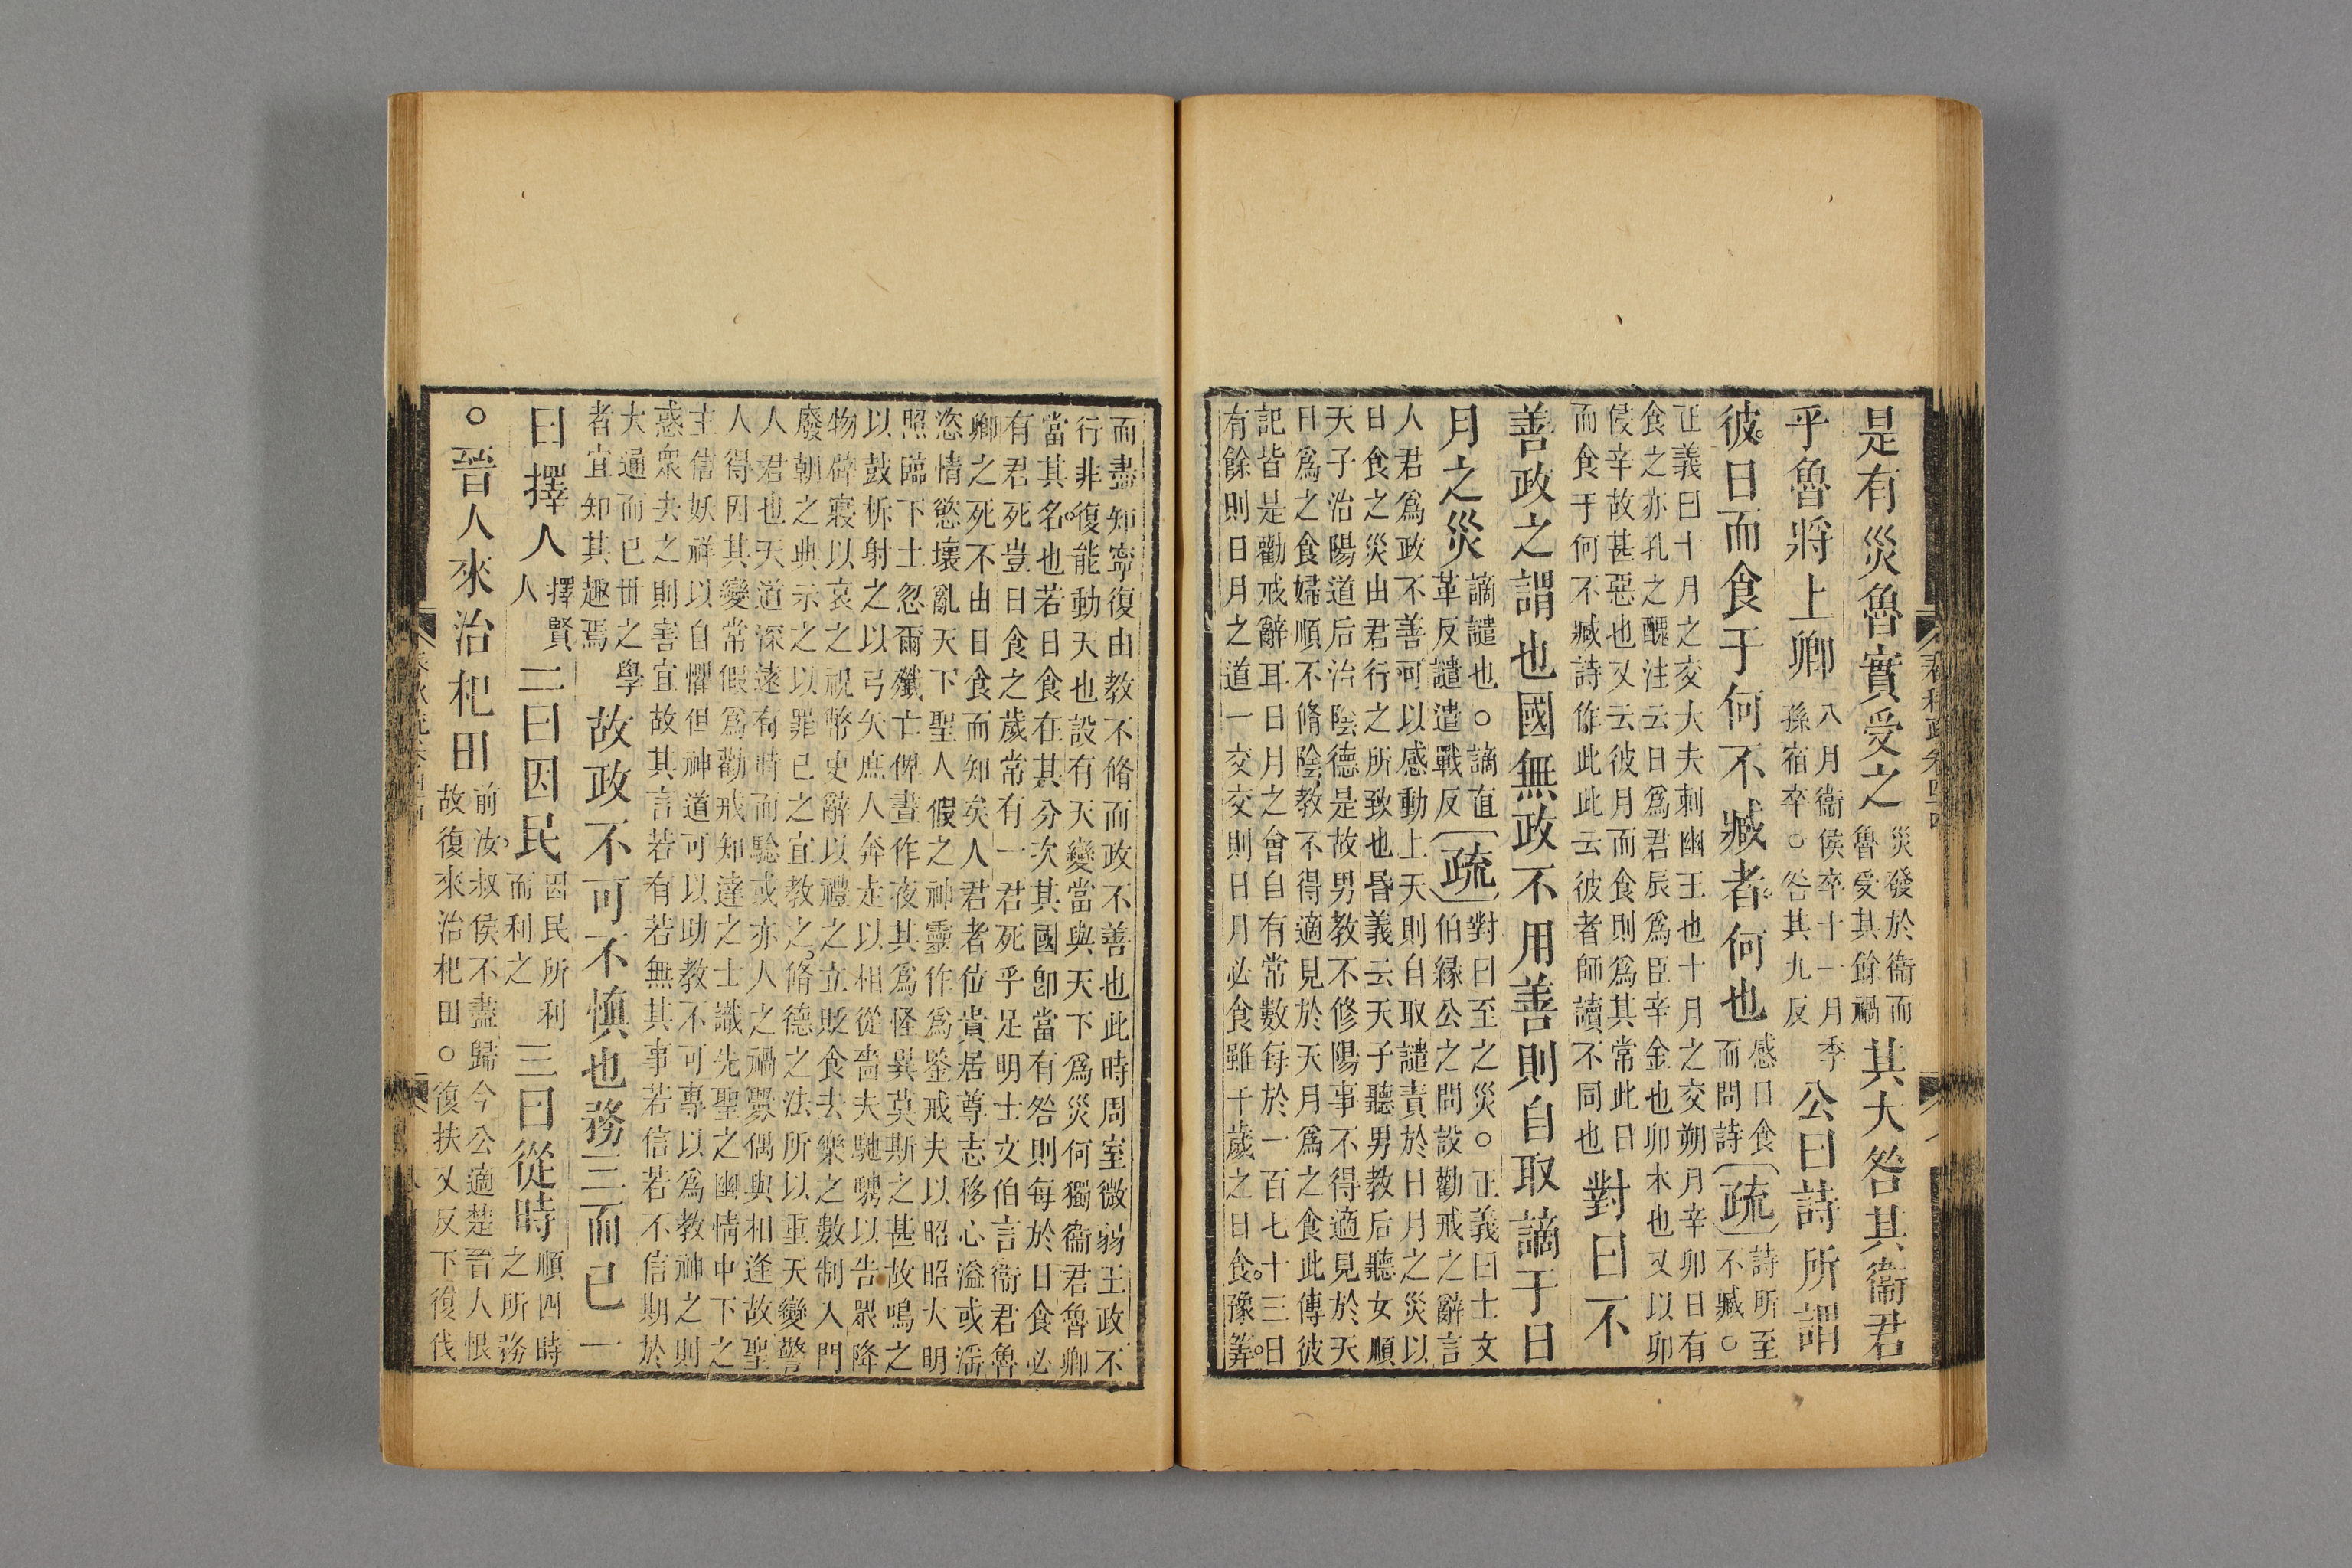 是有災魯實受之
災發於衞而
魯受其餘禍
其大咎其衞君
乎魯將上卿
八月衞侯卒十一月季
孫宿卒○咎其九反
公曰詩所謂
彼日而食于何不臧者何也
感日食
而問詩
疏
詩所至
不臧○
正義曰十月之交大夫刺幽王也十月之交朔月辛卯日有
食之亦孔之醜注云日爲君辰爲臣辛金也卯木也又以卯
侵辛故甚惡也又云彼月而食則爲其常此日
而食于何不臧詩作此此云彼者師讀不同也
對曰不
善政之謂也國無政不用善則自取謫于日
月之災
謫譴也○謫直
革反譴遣戰反
疏
對曰至之災○正義曰士文
伯緣公之問設勸戒之辭言
人君爲政不善可以感動上天則自取譴責於日月之災以
日食之災由君行之所致也昏義云天子聽男教后聽女順
天子治陽道后治陰德是故男教不修陽事不得適見於天
日爲之食婦順不脩陰教不得適見於天月爲之食此傳彼
記皆是勸戒辭耳日月之會自有常數每於一百七十三日
有餘則日月之道一交交則日月必食雖千歲之日食豫筭
而盡知寧復由教不脩而政不善也此時周室微弱王政不
行非復能動天也設有天變當與天下爲災何獨衞君魯卿
當其名也若日食在其分次其國卽當有咎則每於日食必
有君死豈日食之歲常有一君死乎足明士文伯言衞君魯
卿之死不由日食而知矣人君者位貴居尊志移心溢或淫
恣情慾壞亂天下聖人假之神靈作爲鑒戒夫以昭昭大明
照臨下土忽爾殲亡俾晝作夜其爲怪異莫斯之甚故鳴之
以鼓柝射之以弓矢庶人奔走以相從嗇夫馳騁以告眾降
物辟寢以哀之祝幣史辭以禮之立貶食去樂之數制入門
廢朝之典示之以罪己之宜教之脩德之法所以重天變警
人君也天道深遠有時而驗或亦人之禍釁偶與相逢故聖
人得因其變常假爲勸戒知達之士識先聖之幽情中下之
主信妖祥以自懼但神道可以助教不可專以爲教神之則
惑衆去之則害宜故其言若有若無其事若信若不信期於
大通而已世之學
者宜知其趣焉
故政不可不慎也務三而已一
曰擇人
擇賢
人
二曰因民
因民所利
而利之
三曰從時
順四時
之所務
○晉人來治杞田
前汝叔侯不盡歸今公適楚晉人恨
故復來治杞田○復扶又反下復伐